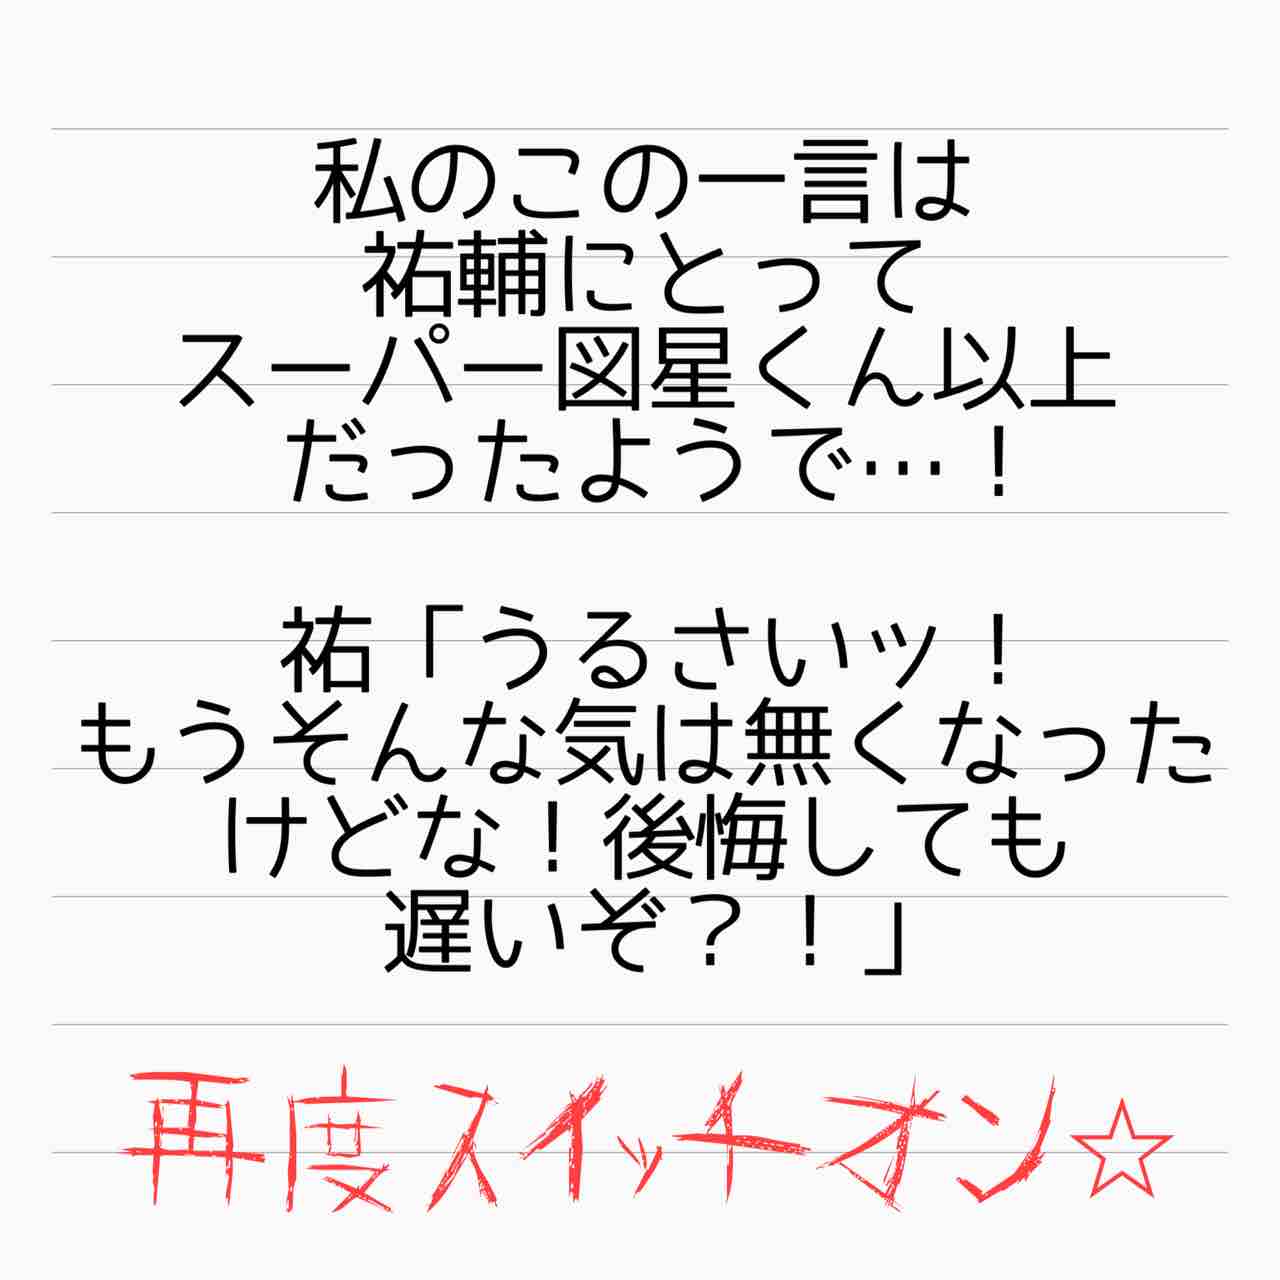 私のこの一言は
祐輔にとって
スーパー図星くん以上
だったようで…！
祐「うるさいッ！
もうそんな気は無くなった
けどな！後悔しても
遅いぞ？！」
再度スイッチオン☆